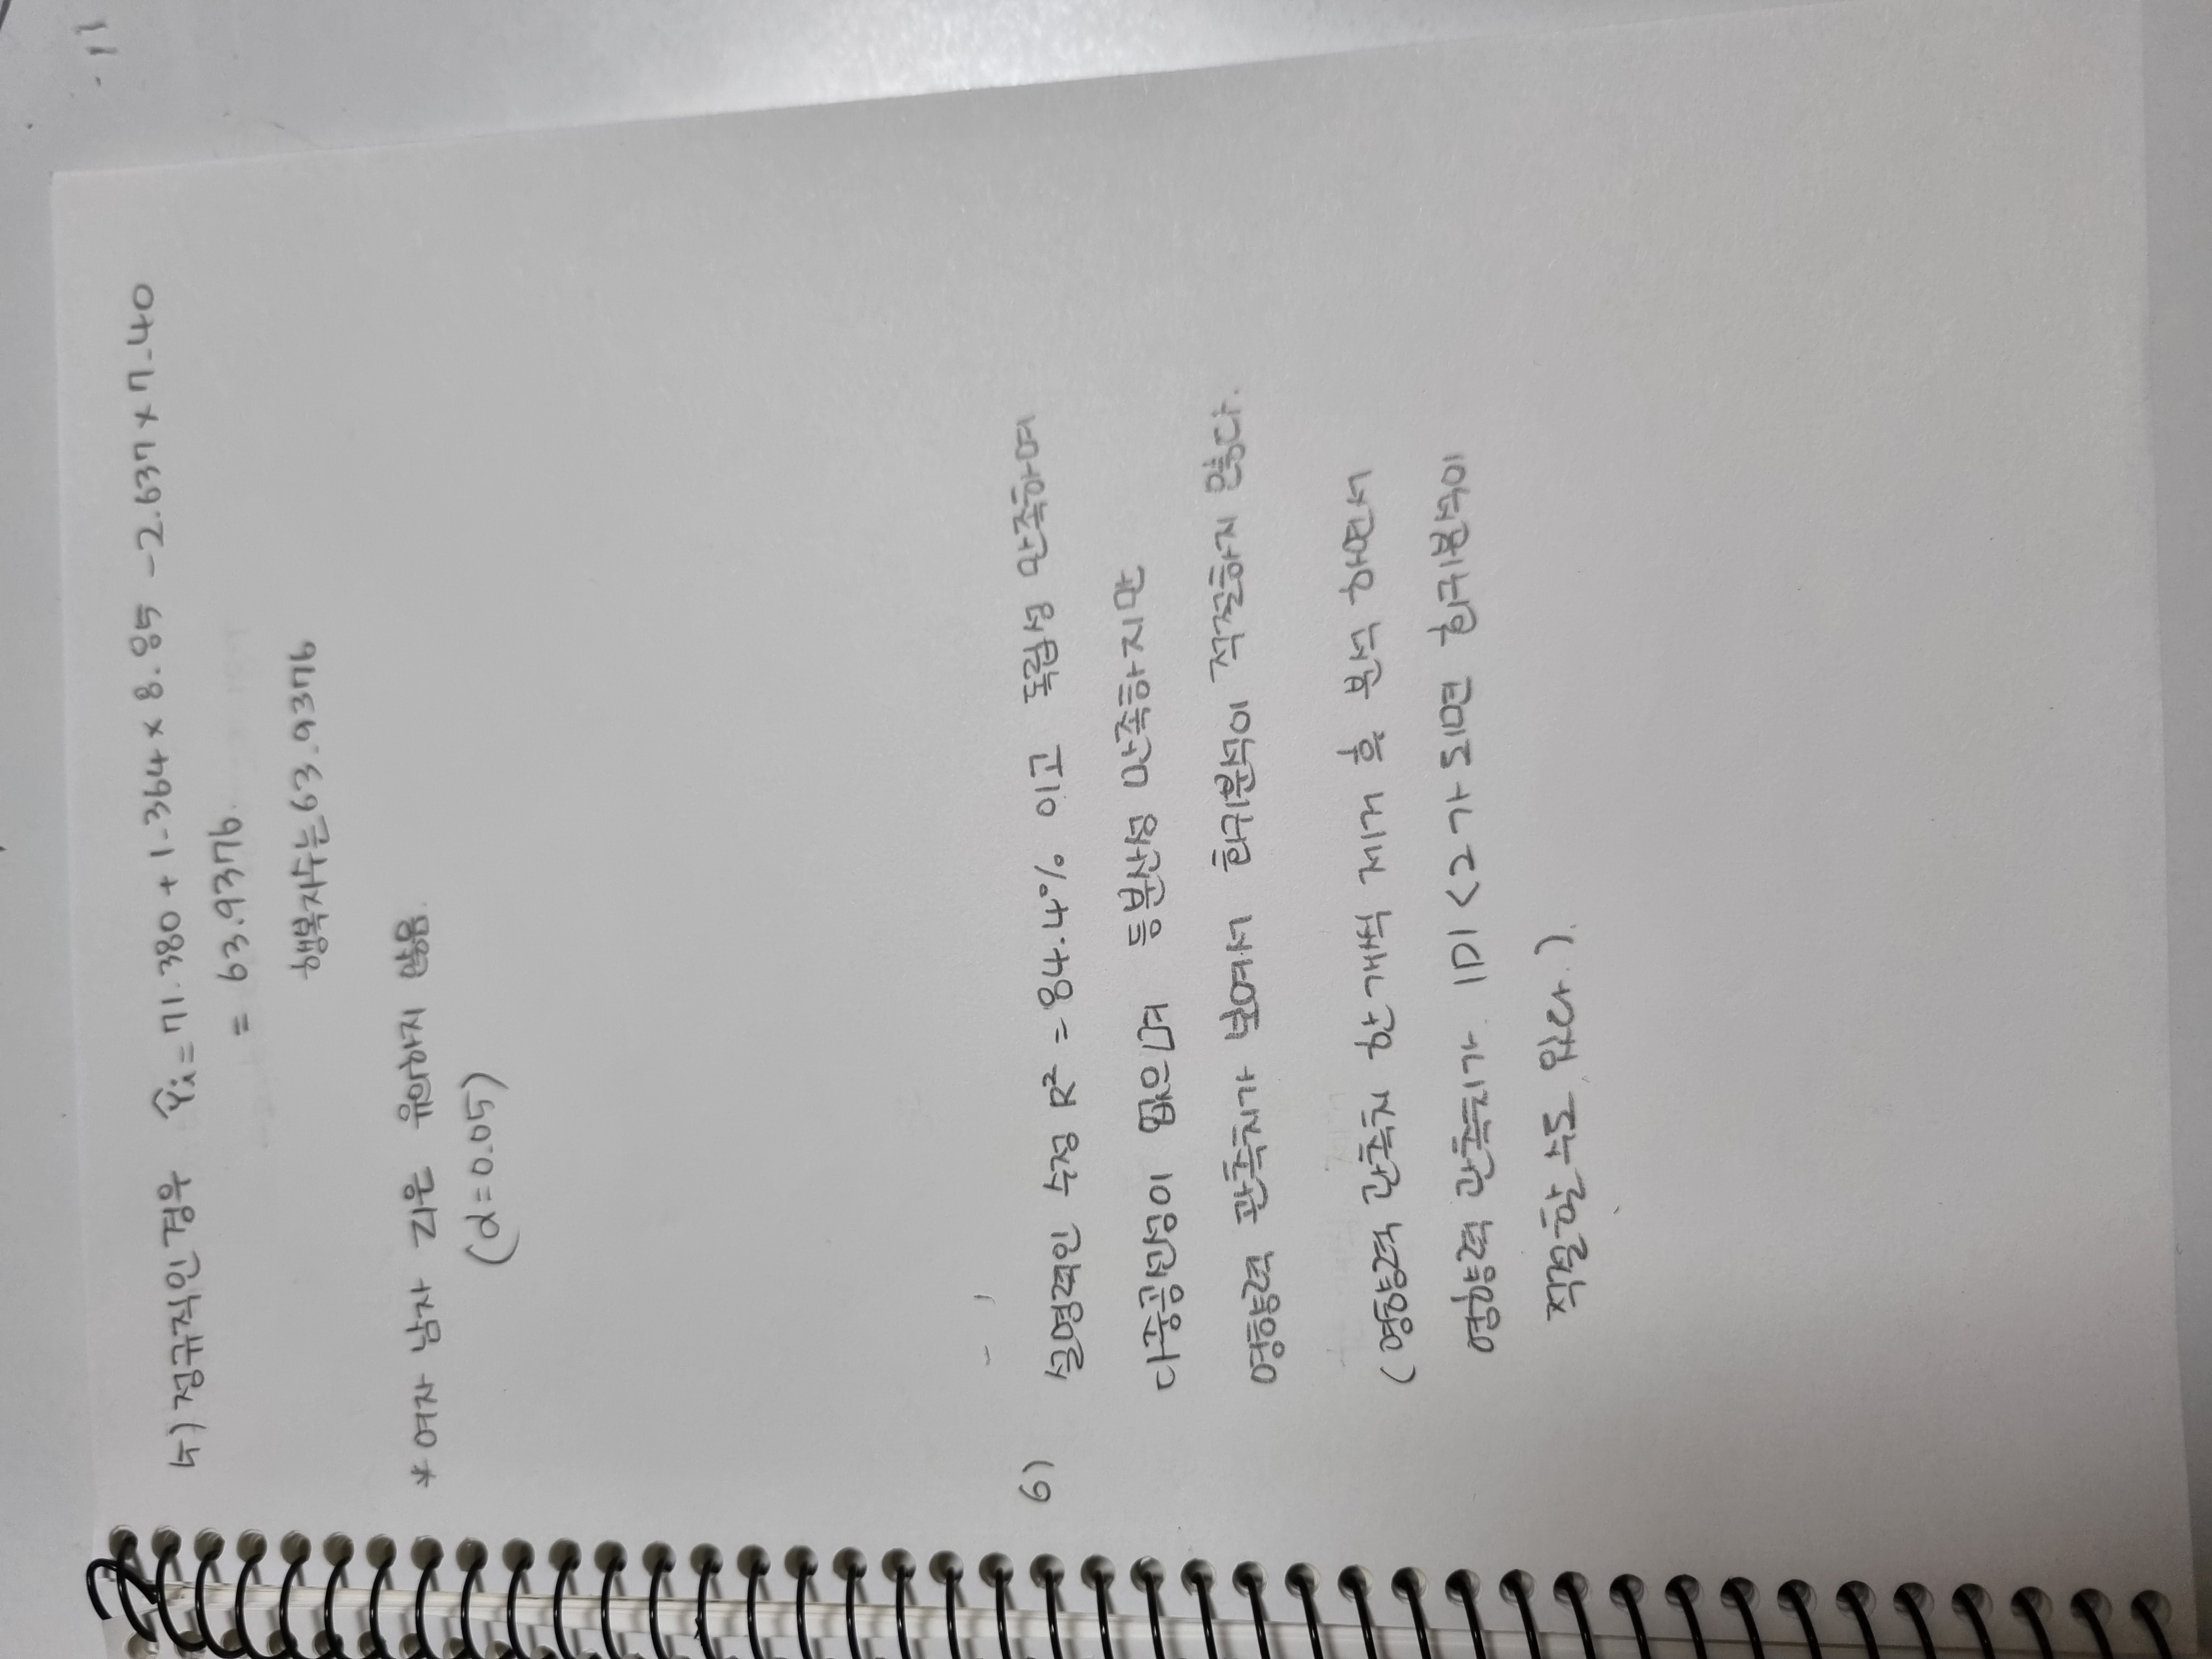 ㄱ) 정규직인 경우 Ŷi = 71.380 + 1.364 × 8.85 - 2.637 × 7.40
= 63.9376.
행복지수는 63.9376
* 여자 남자 더미는 유의하지 않음.
(α=0.05)
6)
설명력인 수정 R² = 84.4% 이고 독립성 만족하며
다중공선성이 없으며 등분산성 만족하지만
영향력 관측치가 보여서 회귀분석이 적절하지 않다.
(영향력 관측치 한개씩 제거 후 분석 하면서
영향력 관측치가 |D| < 2 가 되면 회귀분석이
적절할 수도 있다.).